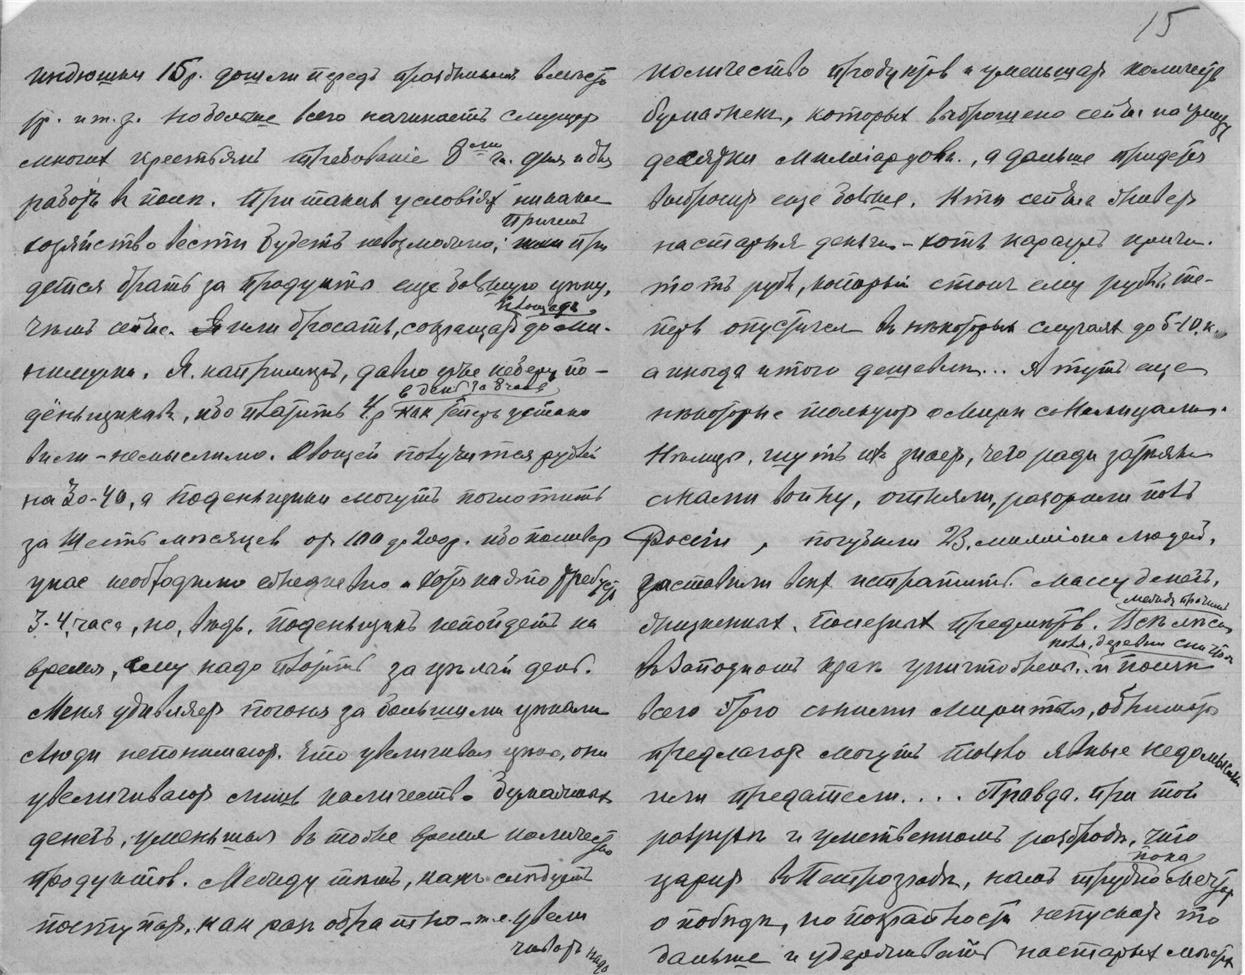 15
индюшки 15р. дошли передъ праздникомъ вместо
р. и т. д. Но больше всего начинаетъ смущать
многихъ крестьянъ требованіе 8ми ч. дня и для
работъ въ полѣ. При такихъ условіяхъ никакое
хозяйство вести будетъ невозможно; причемъ при
дется брать за продукты еще большую цѣну,
чѣмъ сейчас. Или бросать, сокращать площадь до ми-
нимума. Я, напримѣръ, давно уже не беру по-
дёньщиковъ, ибо платить 4р. въ день за 8 часов как теперь устано
вили – немыслимо. Овощей получится рублей
на 30-40, а поденьщики могутъ поглотить
за шесть мѣсяцевъ от 100 до 200р. ибо поливать
у нас необходимо ежедневно и хотя на это требуется
3-4 часа, но, вѣдь, поденьщикъ не пойдетъ на
время, ему надо платить за цѣлый день.
Меня удивляетъ погоня за большими цѣнами
Люди не понимают, что увеличивая цѣну, они
увеличивают лишь количество бумажныхъ
денегъ, уменьшая въ тоже время количество
продуктовъ. Между тѣмъ, какъ слѣдуетъ
поступать как раз обратно – т.е. увели
чивать надо
количество продуктовъ и уменьшать количество
бумажекъ, которых выброшено сейчас на улицу
десятки милліардовъ, а дальше придется
выбросить еще больше. Кто сейчас живет
на старыя деньги – хоть караулъ кричи.
тотъ рубль, который стоил ему рубль, те-
перь опустился въ нѣкоторых случаях до 5-10 к.,
а иногда и того дешевле... А тутъ еще
нѣкоторые толкуют о мирѣ с нѣмцами.
Нѣмцы, чуть их знает, чего ради затѣяли
с нами войну, отняли, разорили пол
Россіи, погубили 23 милліона людей,
заставили всѣх истратить массу денегъ,
жизненных, полезных предметовъ.
в Западномъ краѣ уничтожены.. и послѣ
всего этого с ними мириться,
предлагать могутъ только явные недомысли
или предатели.... Правда, при той
разрухѣ и умственномъ разбродѣ, что
царитъ въ Петроградѣ, намъ трудно пока мечтать
о побѣдѣ, но по крайности не пускать то
дальше и удерживать на старых мѣстах